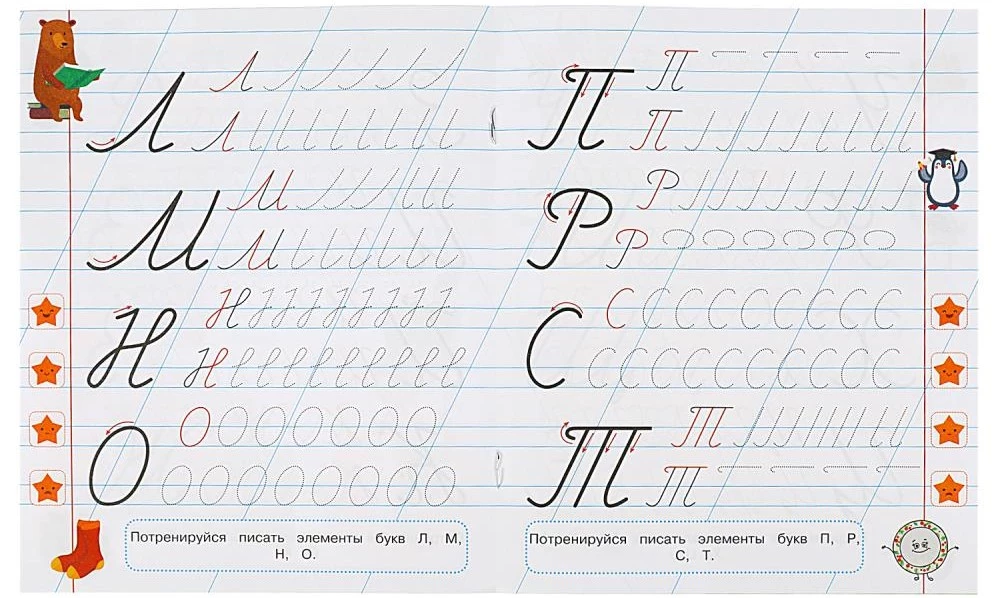 Л Л
Л
М М
М
Н Н
Н
О О
П П
П
Р Р
Р
С С
Т Т
Т
Потренируйся писать элементы букв Л, М,
Н, О.
Потренируйся писать элементы букв П, Р,
С, Т.